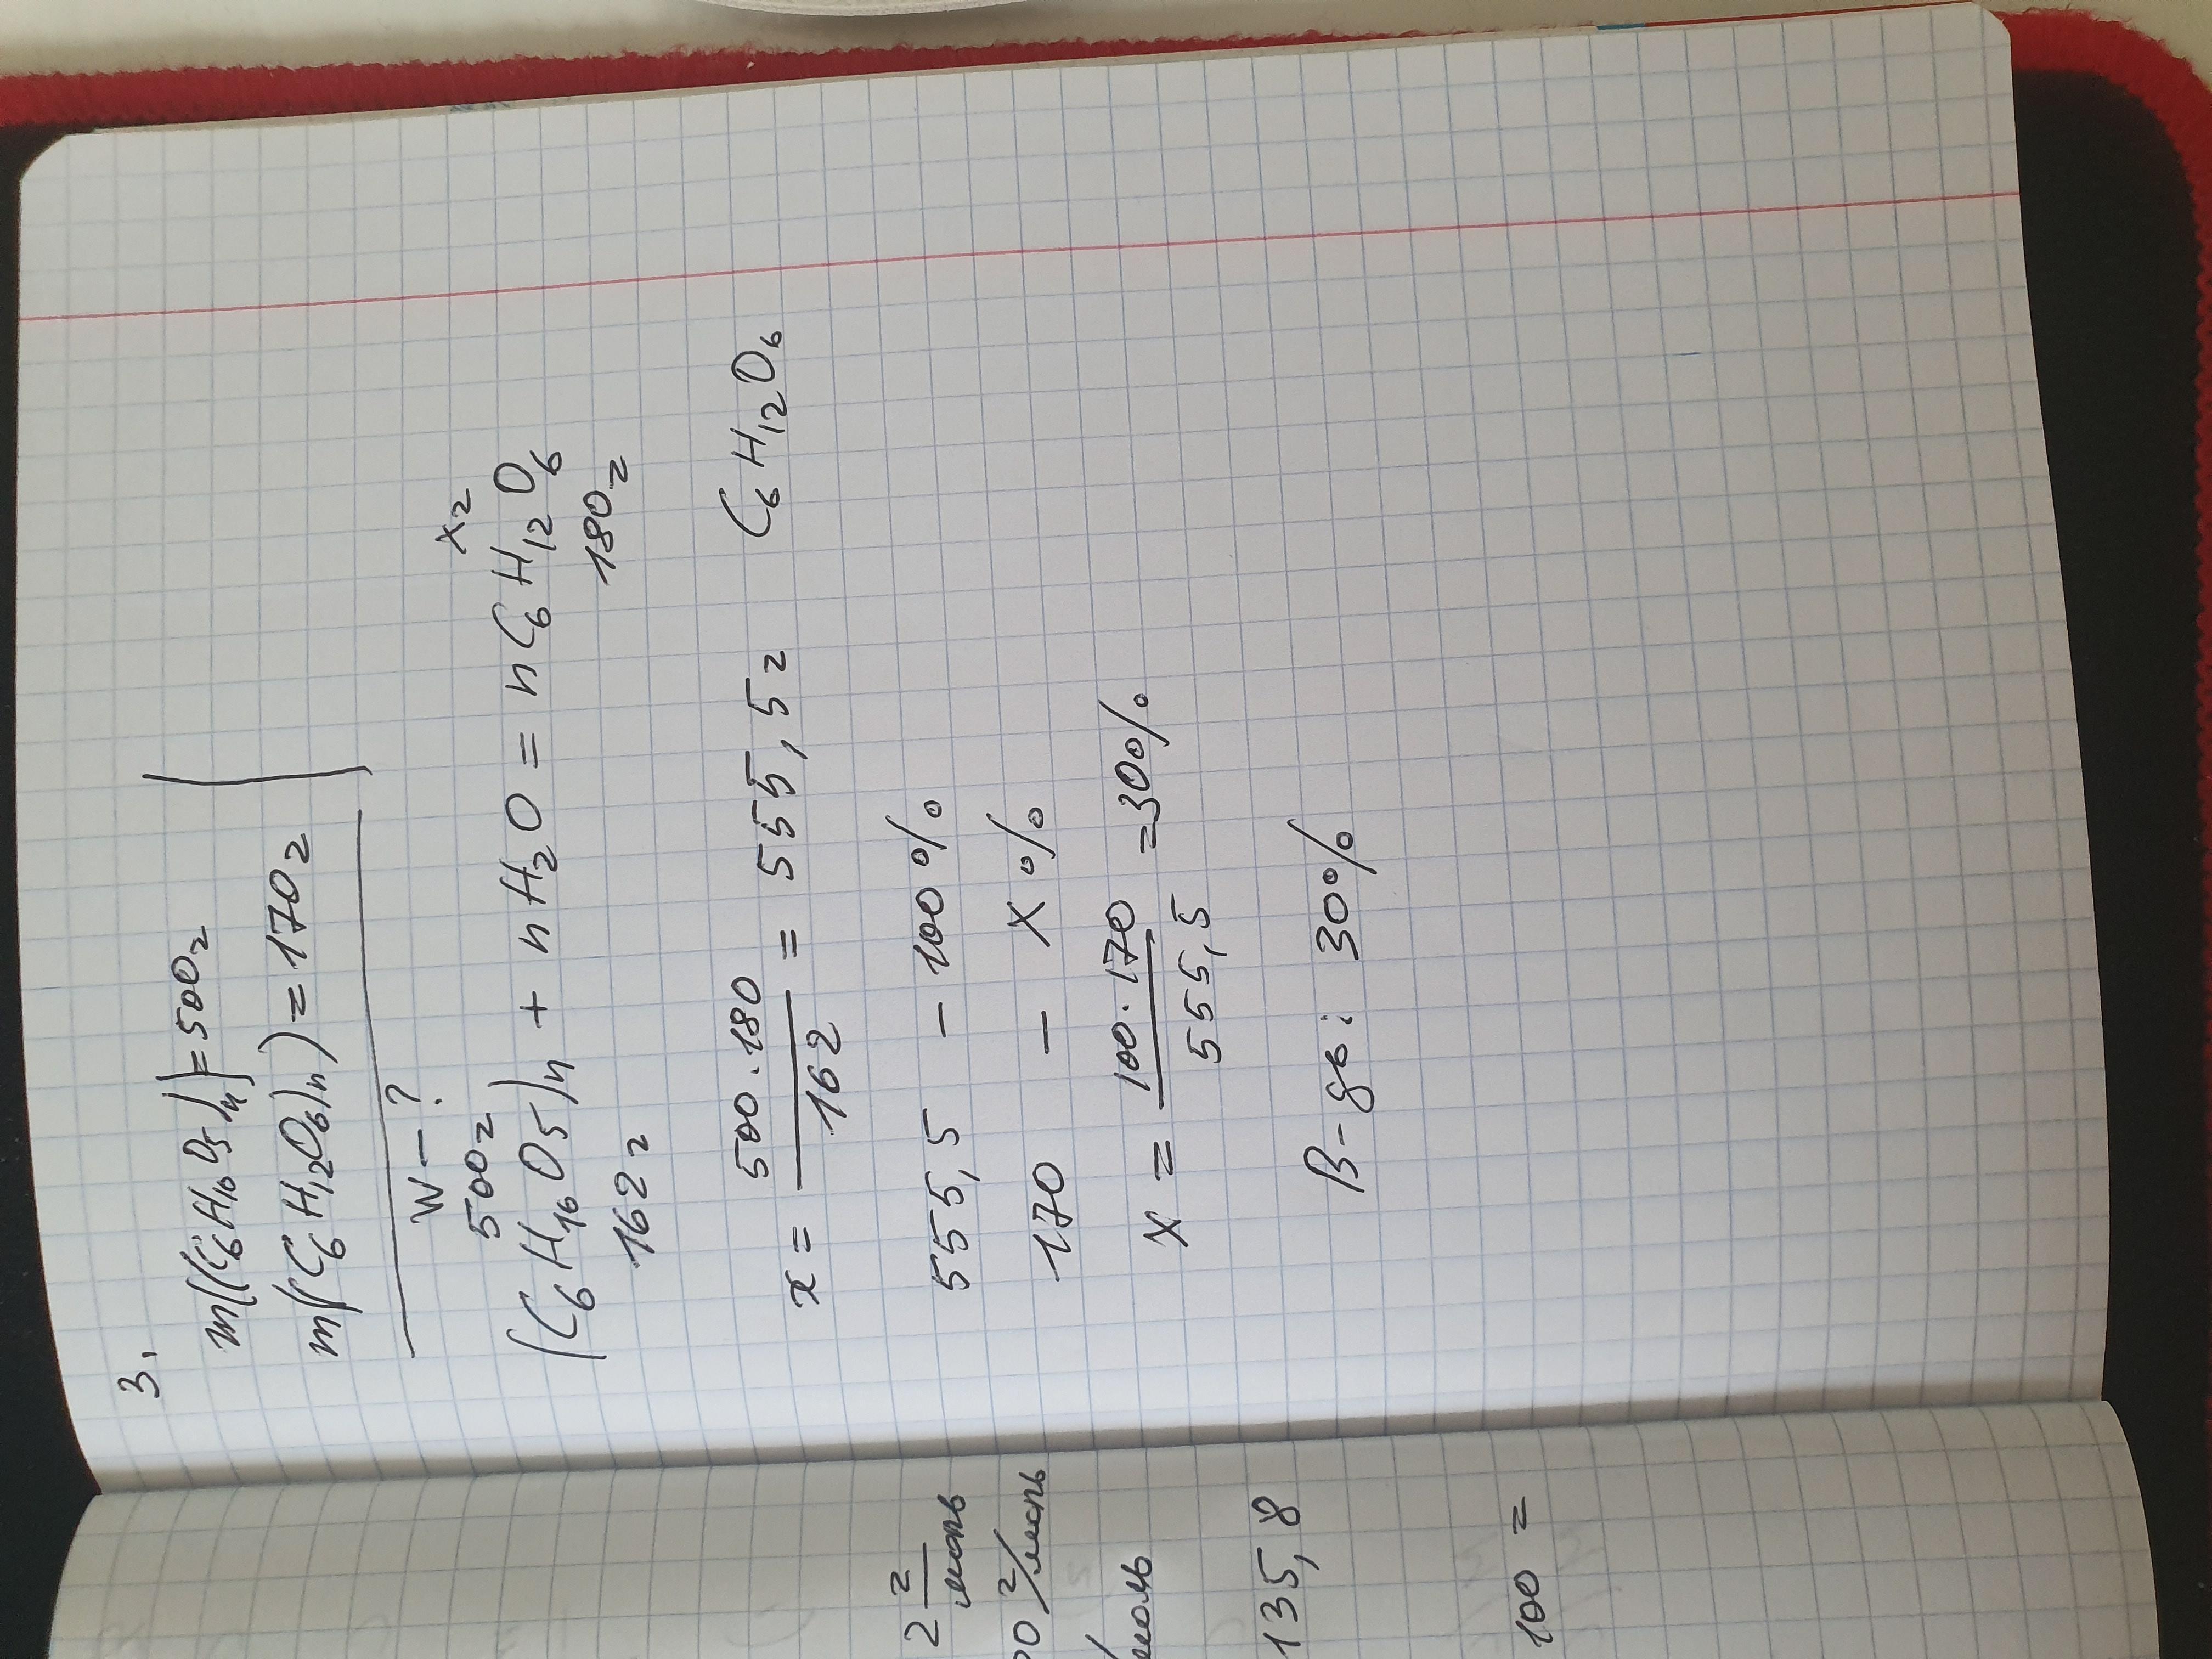 3.
m((C₆H₁₀O₅)ₙ) = 500г
m((C₆H₁₂O₆)ₙ) = 170г
W – ?
500г xг
(C₆H₁₀O₅)ₙ + nH₂O = nC₆H₁₂O₆
162г 180г
x = 500 · 180 / 162 = 555,5г C₆H₁₂O₆
555,5 – 100%
170 – x%
x = 100 · 170 / 555,5 = 30%
В-дь: 30%
2 г/моль
00 г/моль
/моль
135,8
100 =